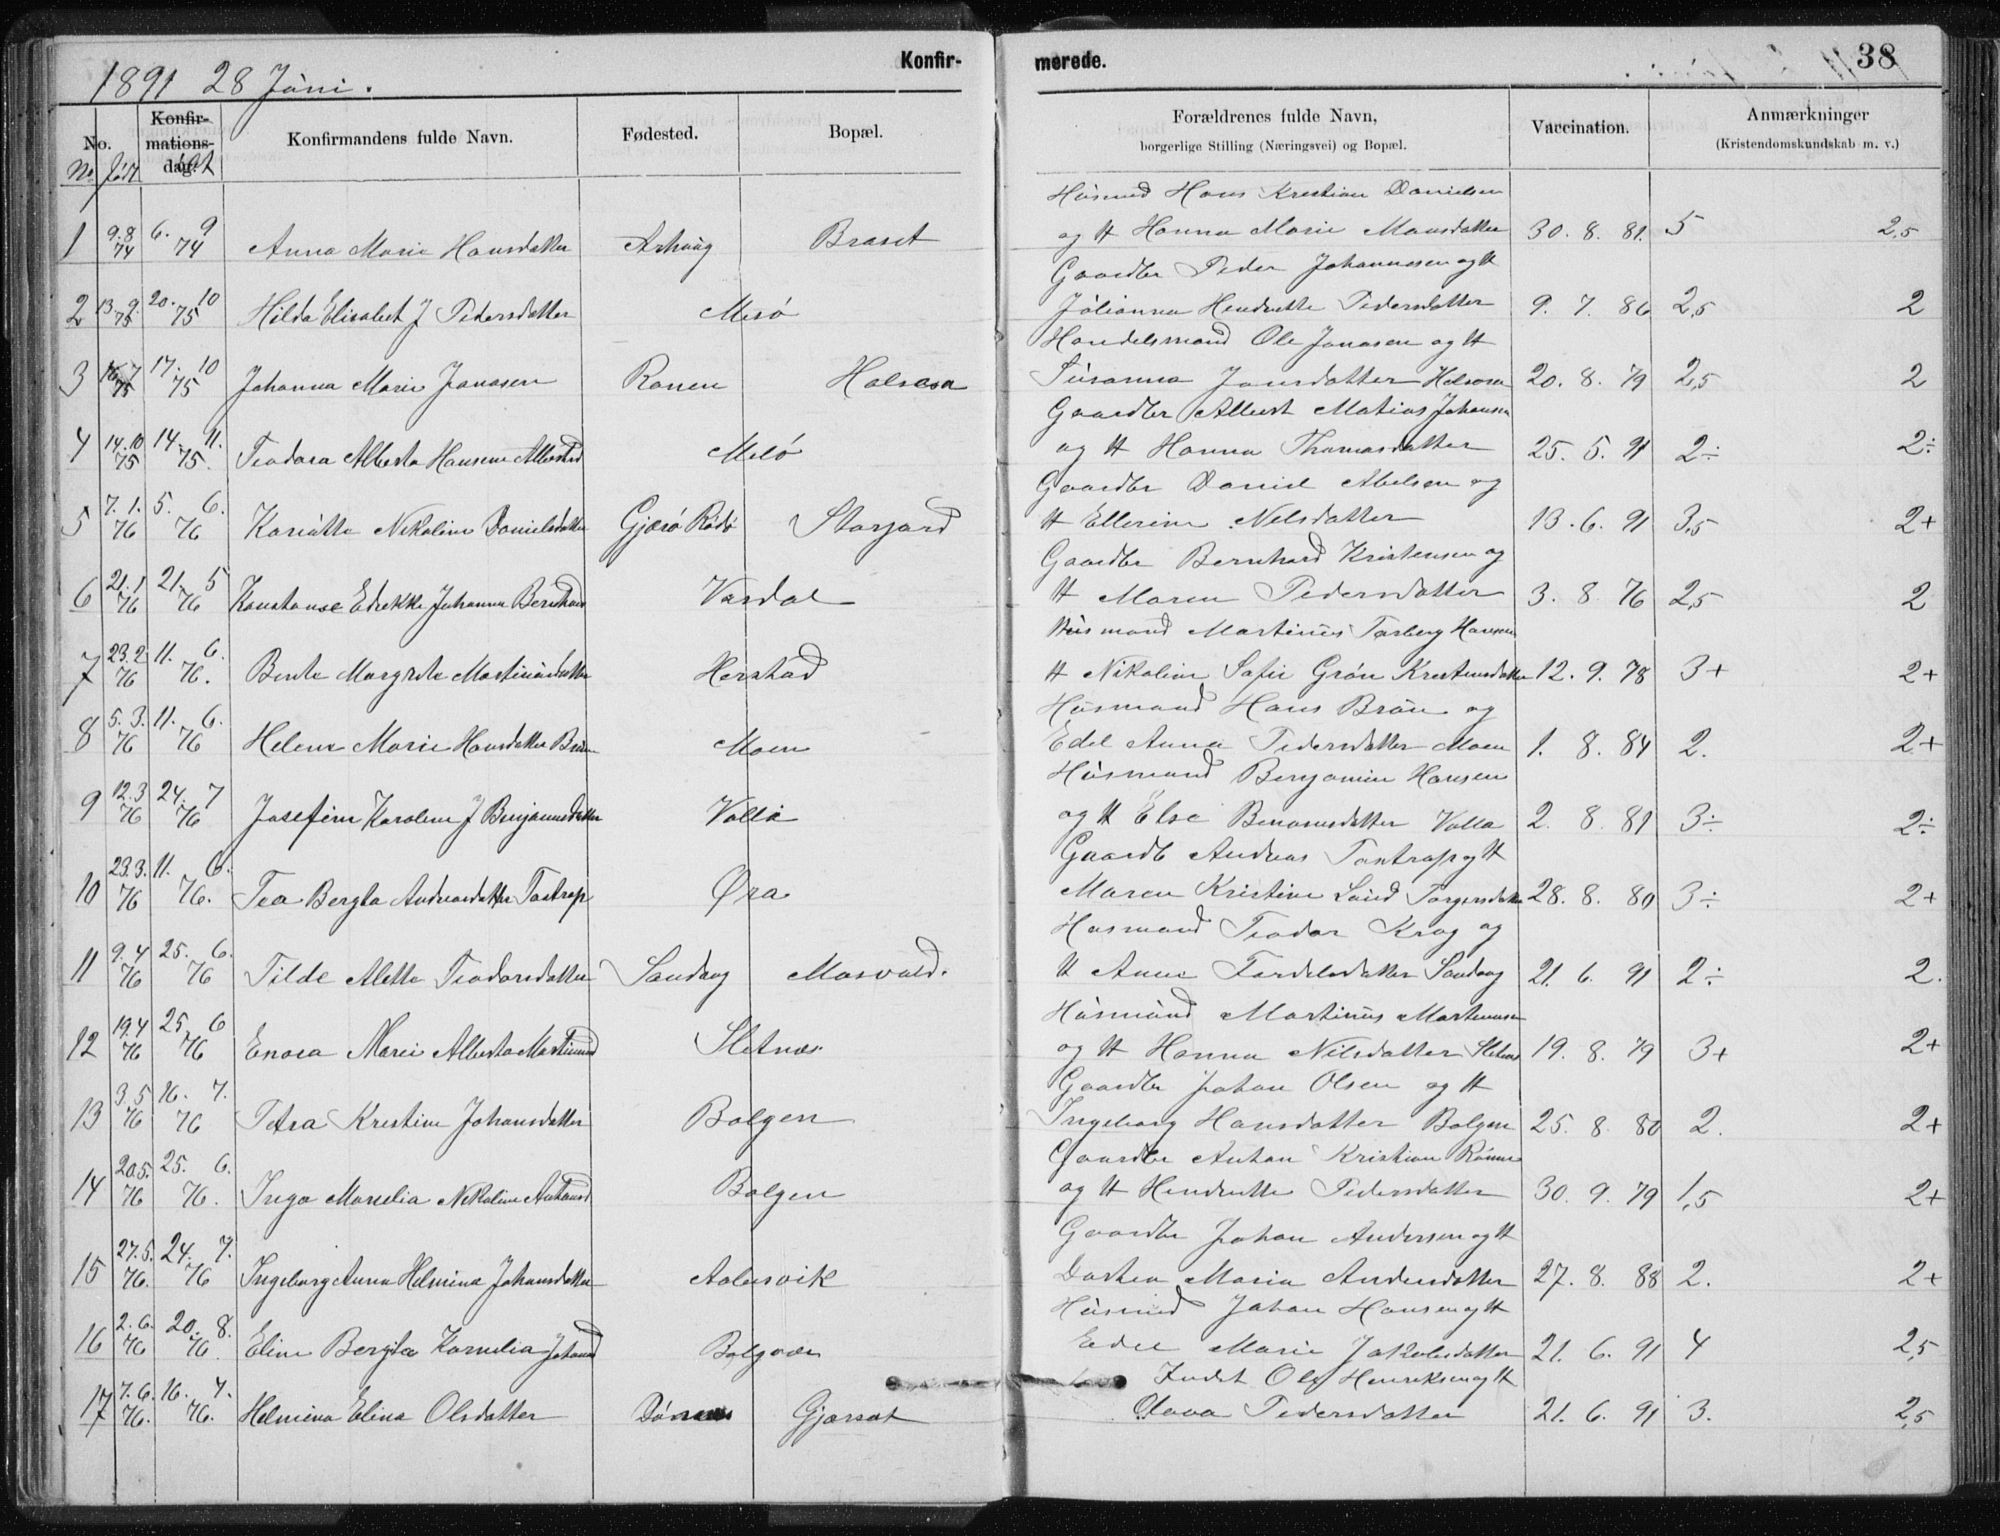 Konfir-
merede.
38
1891 28 Júni.
No.
Konfir-
mations-
dag.
Konfirmandens fulde Navn.
Fødested.
Bopæl.
Forældrenes fulde Navn,
borgerlige Stilling (Næringsvei) og Bopæl.
Vaccination.
Anmærkninger
(Kristendomskundskab m. v.)
No født
Husmd Hans Kristian Danielsen
1 9.8 74 6. 9 74 Anna Marie Hansdatter Braset og H Hanna Marie Mansdatter 30. 8. 81. 5 2,5
Gaardbr Peder Johannesen og H
2 13.9. 75 20. 10 75 Hilda Elisabet J Pedersdatter Mesö Júlianna Hendrette Pedersdatter 9. 7. 86 2,5 2
Handelsmand Ole Jonasen og H
3 16.7 75 17. 10 75 Johanna Marie Jonasen Ranen Halsosa Súsanna Jonsdatter Halsosa 20. 8. 79 2,5 2
Gaardbr Albert Matias Johansen
4 14.10 75 14. 11. 75. Teodora Alberta Hansine Albertsd Melö og H Hanna Thomasdatter 25. 5. 91 2÷ 2÷
Gaardbr Daniel Abelsen og
5 7.1. 76 5. 6. 76 Nikoline Danielsdatter Gjæsö Rödö Storjord H Ellerine Nelsdatter 13. 6. 91 3,5 2+
Gaardbr Bernhard Kristensen og
6 21.1 76 21. 5 76 Konstanse Edrekke Johanna Bernhard Vasdal H Maren Pedersdatter 3. 8. 76 2,5 2
Húsmand Martinús Torberg Hansen
7 23.2 76 11. 6. 76. Bente Margrete Martinúsdatter Herstad H Nikoline Sofie Grön Kristensdatter 12. 9. 78 3+ 2+
Húsmand Hans Brún og
8 5.3. 76 11. 6. 76 Helene Marie Hansdatter Brún Moen Edel Anna Pedersdatter Moen 1. 8. 84 2. 2+
Húsmand Benjamin Hansen
9 12.3 76 24. 7 76 Josefine Karoline J Benjaminsdatter Valla og H Else Benonisdatter Valla 2. 8. 81 3÷ 2÷
Gaardb Andreas Tostrup og H
10 23.3. 76 11. 6. 76. Tea Bergta Andreasdatter Tostrup Øra Maren Kristine Lúnd Torgersdatter 28. 8. 80 3÷ 2+
Husmand Teodor Krog og
11 9.4 76 25. 6. 76 Tilde Alette Teodorsdatter Sandvog Mosvold. H Anne Tordelsdatter Sandvog 21. 6. 91 2÷ 2.
Húsmand Martinús Martinusen
12 19.4 76 25. 6 76 Marie Alberta Martinusd Sletnes og H Hanna Nilsdatter Sletnes 19. 8. 79 3+ 2+
Gaardbr Johan Olsen og H
13 3.5 76 16. 7. 76 Petra Kristine Johansdatter Bolgen Ingeborg Hansdatter Bolgen 25. 8. 80 2. 2+
Gaardbr Anton Kristian Rönne
14 20.5. 76 25. 6. 76. Inga Marselia Nikoline Antonsd Bolgen og H Hendrette Pedersdatter 30. 9. 79 1,5 2+
Gaardbr Johan Andersen og H
15 27.5. 76. 24. 7. 76 Ingeborg Anna Helmina Johansdatter Aalesvik Dortea Maria Andersdatter 27. 8. 88 2. 2+
Húsmd Johan Hansen og H
16 2.6. 76 20. 8. 76. Eline Bergta Kornelia Johansd Bolgvær Edel Marie Jakobsdatter 21. 6. 91 4 2,5
Indst Ole Henriksen og H
17 7.6. 76. 16. 7. 76. Helmina Elina Olsdatter Dönnes Gjæsset Olava Pedersdatter 21. 6. 91 3. 2,5